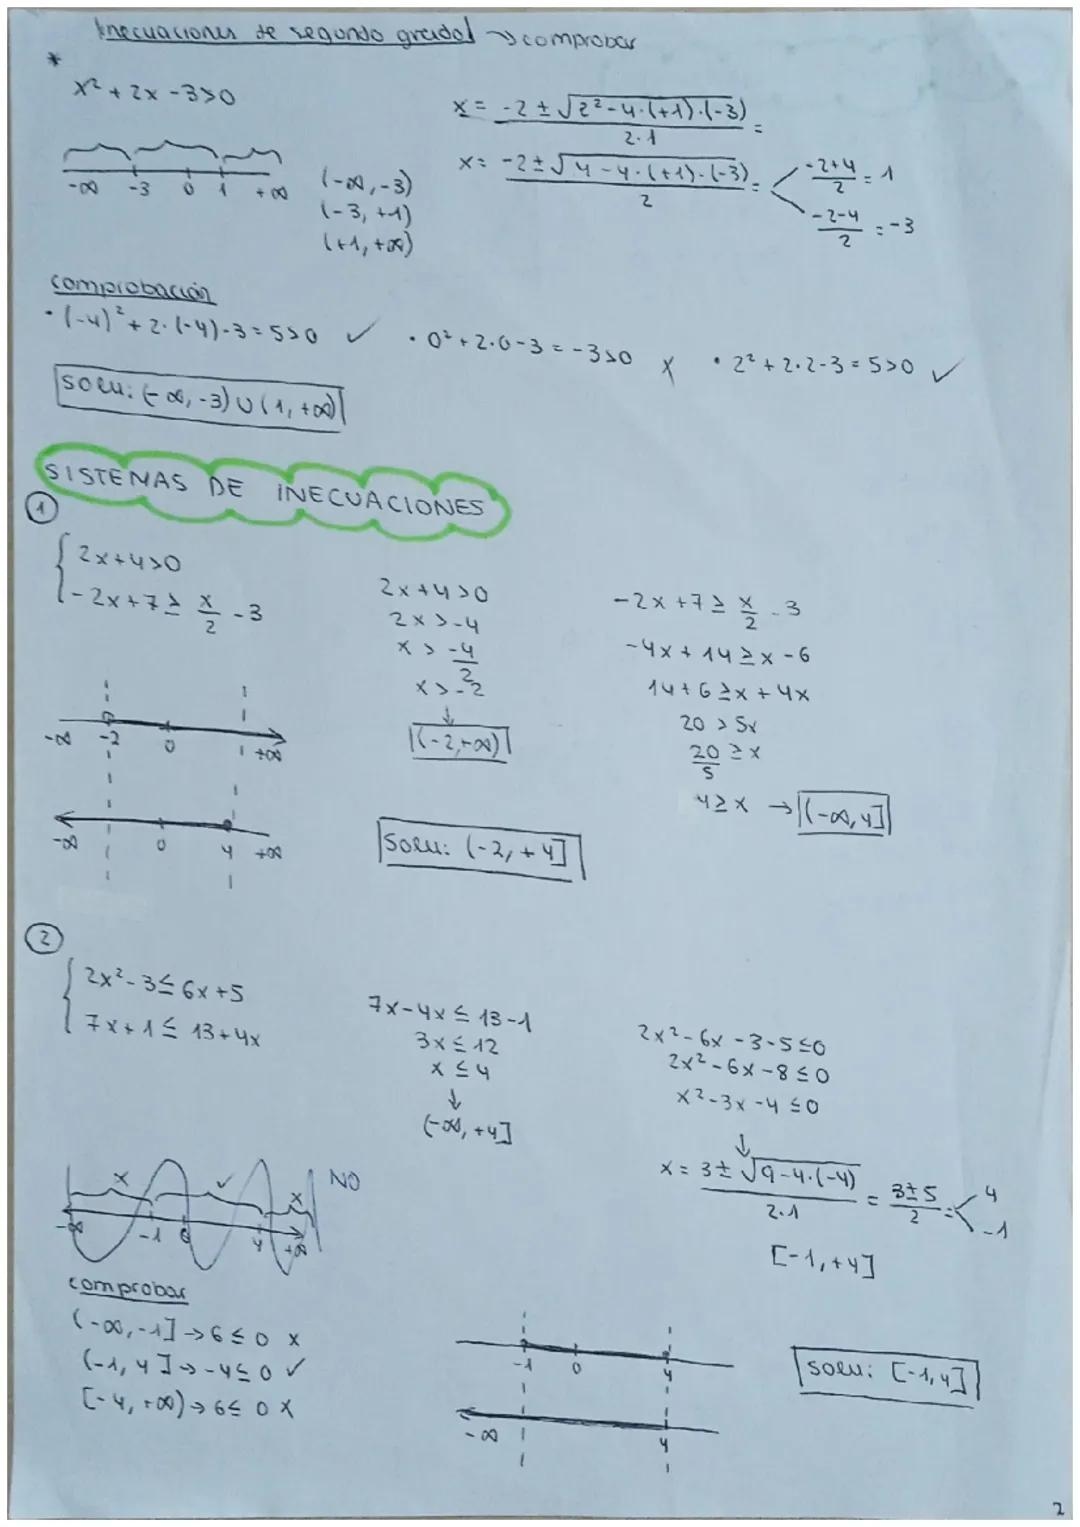 Inecuaciones de segundo grado → comprobar
*
x² + 2x - 3 > 0
x = -2 ± √2² - 4·(+1)·(-3) / 2·1 =
x = -2 ± √4 - 4·(+1)·(-3) / 2 = -2+4 / 2 = 1
-2-4 / 2 = -3
-∞ -3 0 1 +∞
(-∞, -3)
(-3, +1)
(+1, +∞)
comprobación
· (-4)² + 2·(-4) - 3 = 5 > 0 ✓ · 0² + 2·0 - 3 = -3 > 0 x · 2² + 2·2 - 3 = 5 > 0 ✓
Solu: (-∞, -3) ∪ (1, +∞)
SISTEMAS DE INECUACIONES
1
{ 2x + 4 > 0
-2x + 7 ≥ x/2 - 3
2x + 4 > 0
2x > -4
x > -4/2
x > -2
↓
(-2, +∞)
-2x + 7 ≥ x/2 - 3
-4x + 14 ≥ x - 6
14 + 6 ≥ x + 4x
20 > 5x
20/5 ≥ x
4 ≥ x → (-∞, 4]
-∞ -2 0 +∞
-∞ 0 4 +∞
Solu: (-2, +4]
2
{ 2x² - 3 ≤ 6x + 5
7x + 1 ≤ 13 + 4x
7x - 4x ≤ 13 - 1
3x ≤ 12
x ≤ 4
↓
(-∞, +4]
2x² - 6x - 3 - 5 ≤ 0
2x² - 6x - 8 ≤ 0
x² - 3x - 4 ≤ 0
↓
x = 3 ± √9 - 4·(-4) / 2·1 = 3 ± 5 / 2 = 4
-1
[-1, +4]
x ✓ x NO
-∞ -1 0 4 +∞
comprobar
(-∞, -1] → 6 ≤ 0 x
(-1, 4] → -4 ≤ 0 ✓
[-4, +∞) → 6 ≤ 0 x
-1 0 4
-∞ 4
Solu: [-1, 4]
2